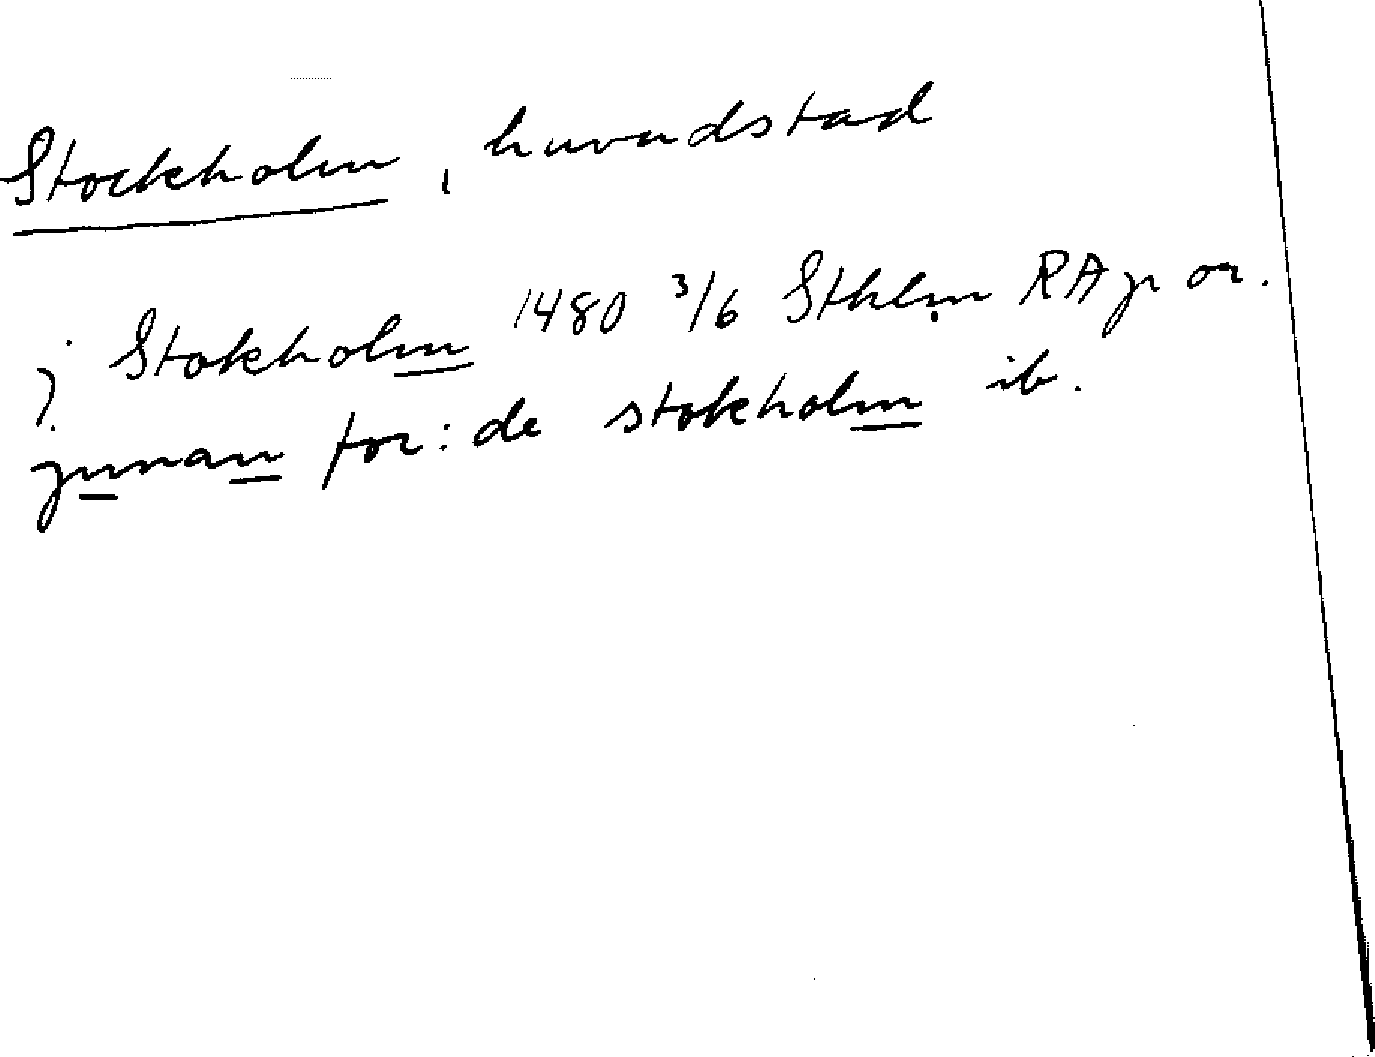 Stockholm, huvudstad
j Stokholm 1480 3/6 Sthlm RAp or.
de stokholm ib.